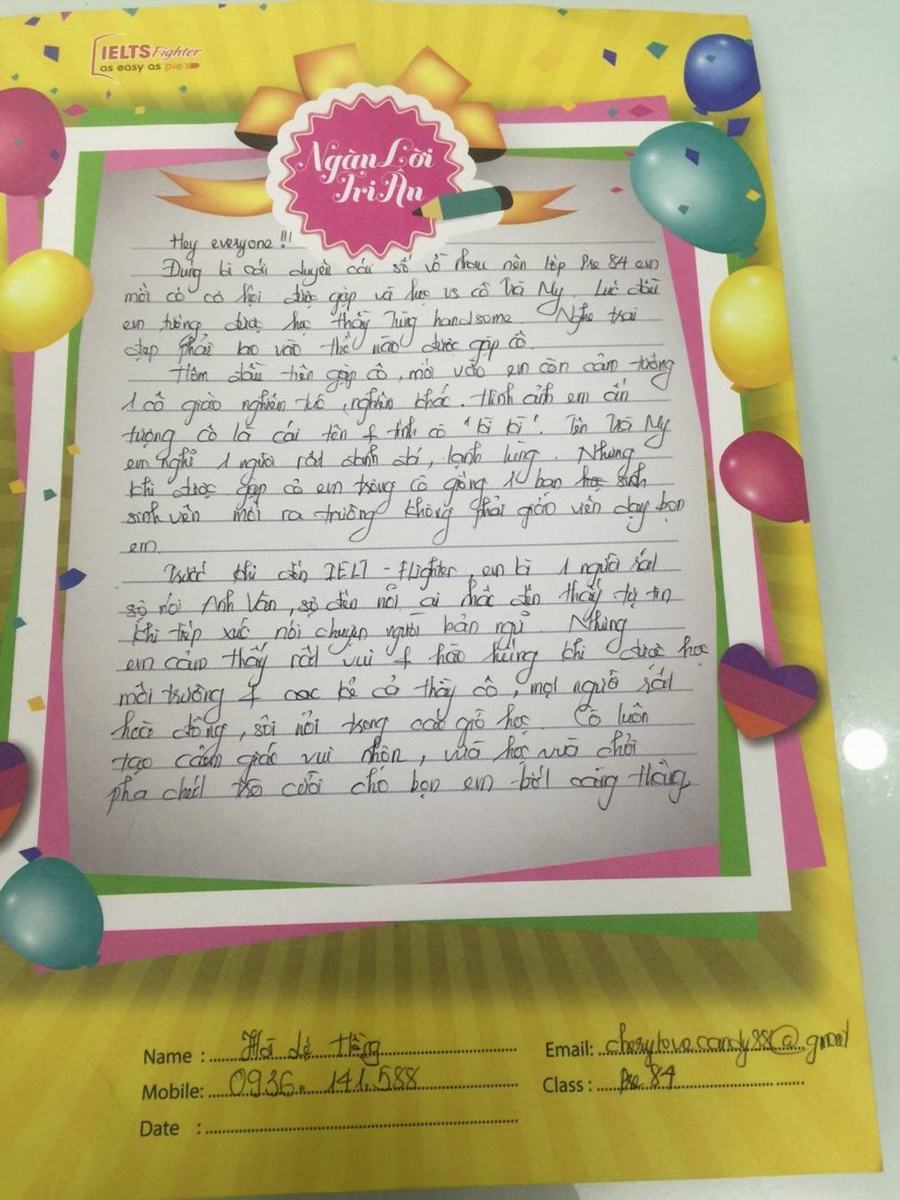 IELTS Fighter
as easy as pie
Ngàn Lời
Tri Ân
Hey everyone!!!
Đúng là cái duyên cái số vồ nhau nên lớp Pre 84 em
mới có cơ hội được gặp và học vs cô Trà My. Lúc đầu
em tưởng được học thầy Tùng handsome. Nghe trai
đẹp phải lao vào thế nào được gặp cô.
Hôm đầu tiên gặp cô, mới vào em còn cảm tưởng
1 cô giáo nghiêm túc, nghiêm khắc. Hình ảnh em ấn
tượng cô là cái tên + tính cô "bì bì". Tên Trà My
em nghĩ 1 người rất đanh đá, lạnh lùng. Nhưng
khi được gặp cô em trông cô giống 1 bạn học sinh
sinh viên mới ra trường không phải giáo viên dạy bọn
em.
Trước khi đến IELT - Flighter, em là 1 người rất
sợ nói Anh Văn, sợ đến nỗi ai nhắc đến thấy tự tin
khi tiếp xúc nói chuyện người bản ngữ. Nhưng
em cảm thấy rất vui + hào hứng khi được học
môi trường + các bé cả thầy cô, mọi người rất
hoà đồng, sôi nổi trong các giờ học. Cô luôn
tạo cảm giác vui nhộn, vừa học vừa chơi
pha chút trò cười cho bọn em bớt căng thẳng
Name : Hà Lệ Hằng
Email: cherylovecandy88@gmail
Mobile: 0936. 141.588
Class : Pre 84
Date :